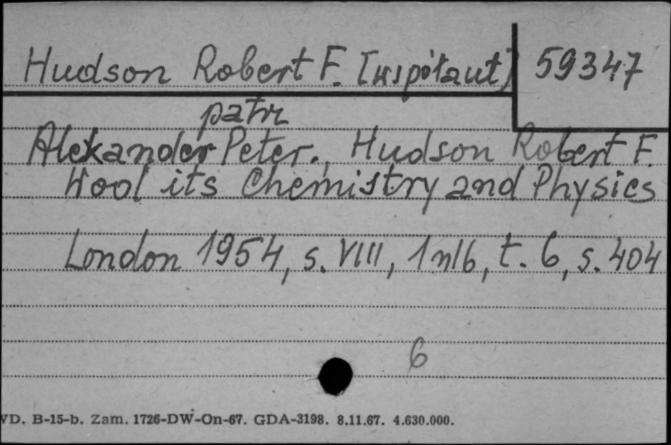 Hudson Robert F. [współaut] 59347
patrz
Alexander Peter., Hudson Robert F.
Wool its Chemistry and Physics
London 1954, s. VIII, 1 nlb, t. 6, s. 404
6
VD. B-15-b. Zam. 1726-DW-On-67. GDA-3198. 8.11.67. 4.630.000.